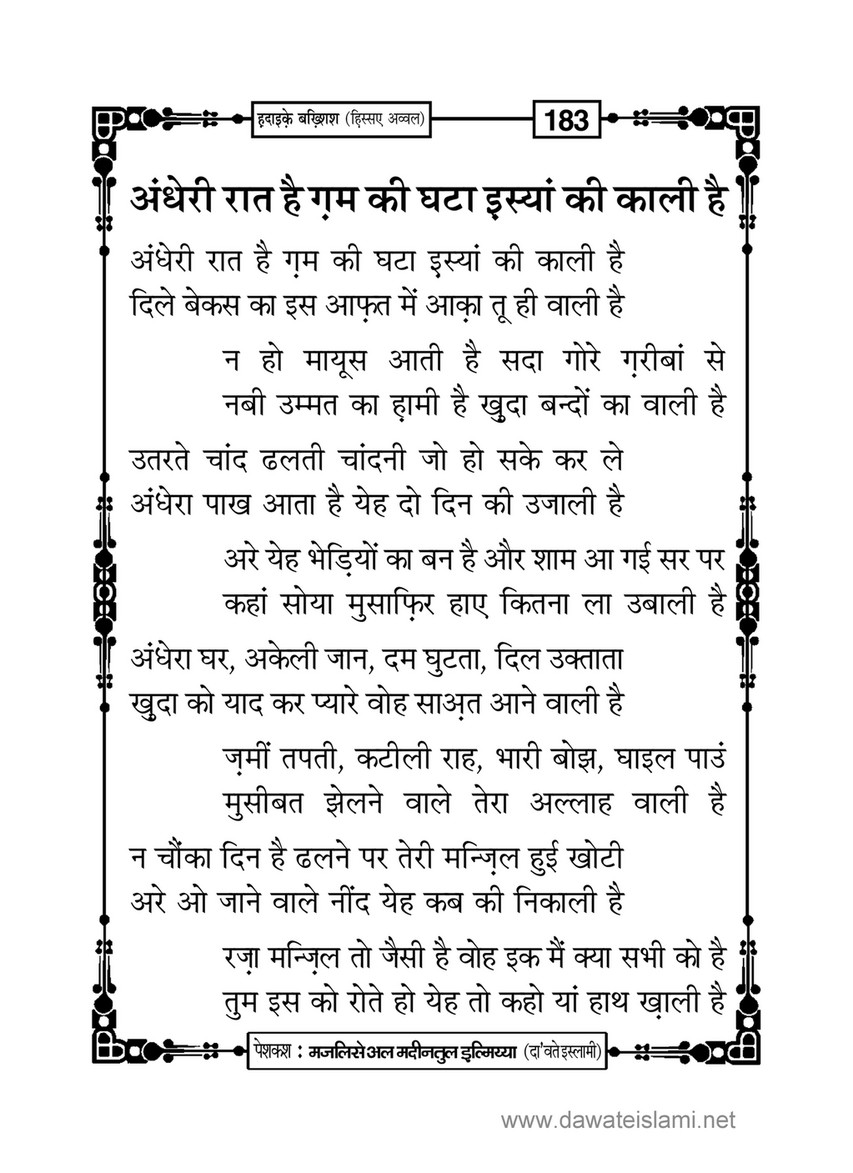 ह़दाइके़ बख़्शिश (हि़स्सए अव्वल)
183
अंधेरी रात है ग़म की घटा इ़स्यां की काली है
अंधेरी रात है ग़म की घटा इ़स्यां की काली है
दिले बेकस का इस आफ़त में आक़ा तू ही वाली है
न हो मायूस आती है सदा गोरे ग़रीबां से
नबी उम्मत का ह़ामी है ख़ुदा बन्दों का वाली है
उतरते चांद ढलती चांदनी जो हो सके कर ले
अंधेरा पाख आता है येह दो दिन की उजाली है
अरे येह भेड़ियों का बन है और शाम आ गई सर पर
कहां सोया मुसाफ़िर हाए कितना ला उबाली है
अंधेरा घर, अकेली जान, दम घुटता, दिल उक्ताता
ख़ुदा को याद कर प्यारे वोह साअ़त आने वाली है
ज़मीं तपती, कटीली राह, भारी बोझ, घाइल पाउं
मुसीबत झेलने वाले तेरा अल्लाह वाली है
न चौंका दिन है ढलने पर तेरी मन्ज़िल हुई खोटी
अरे ओ जाने वाले नींद येह कब की निकाली है
रज़ा मन्ज़िल तो जैसी है वोह इक मैं क्या सभी को है
तुम इस को रोते हो येह तो कहो यां हाथ ख़ाली है
पेशकश : मजलिसे अल मदीनतुल इ़ल्मिय्या (दा'वते इस्लामी)
www.dawateislami.net